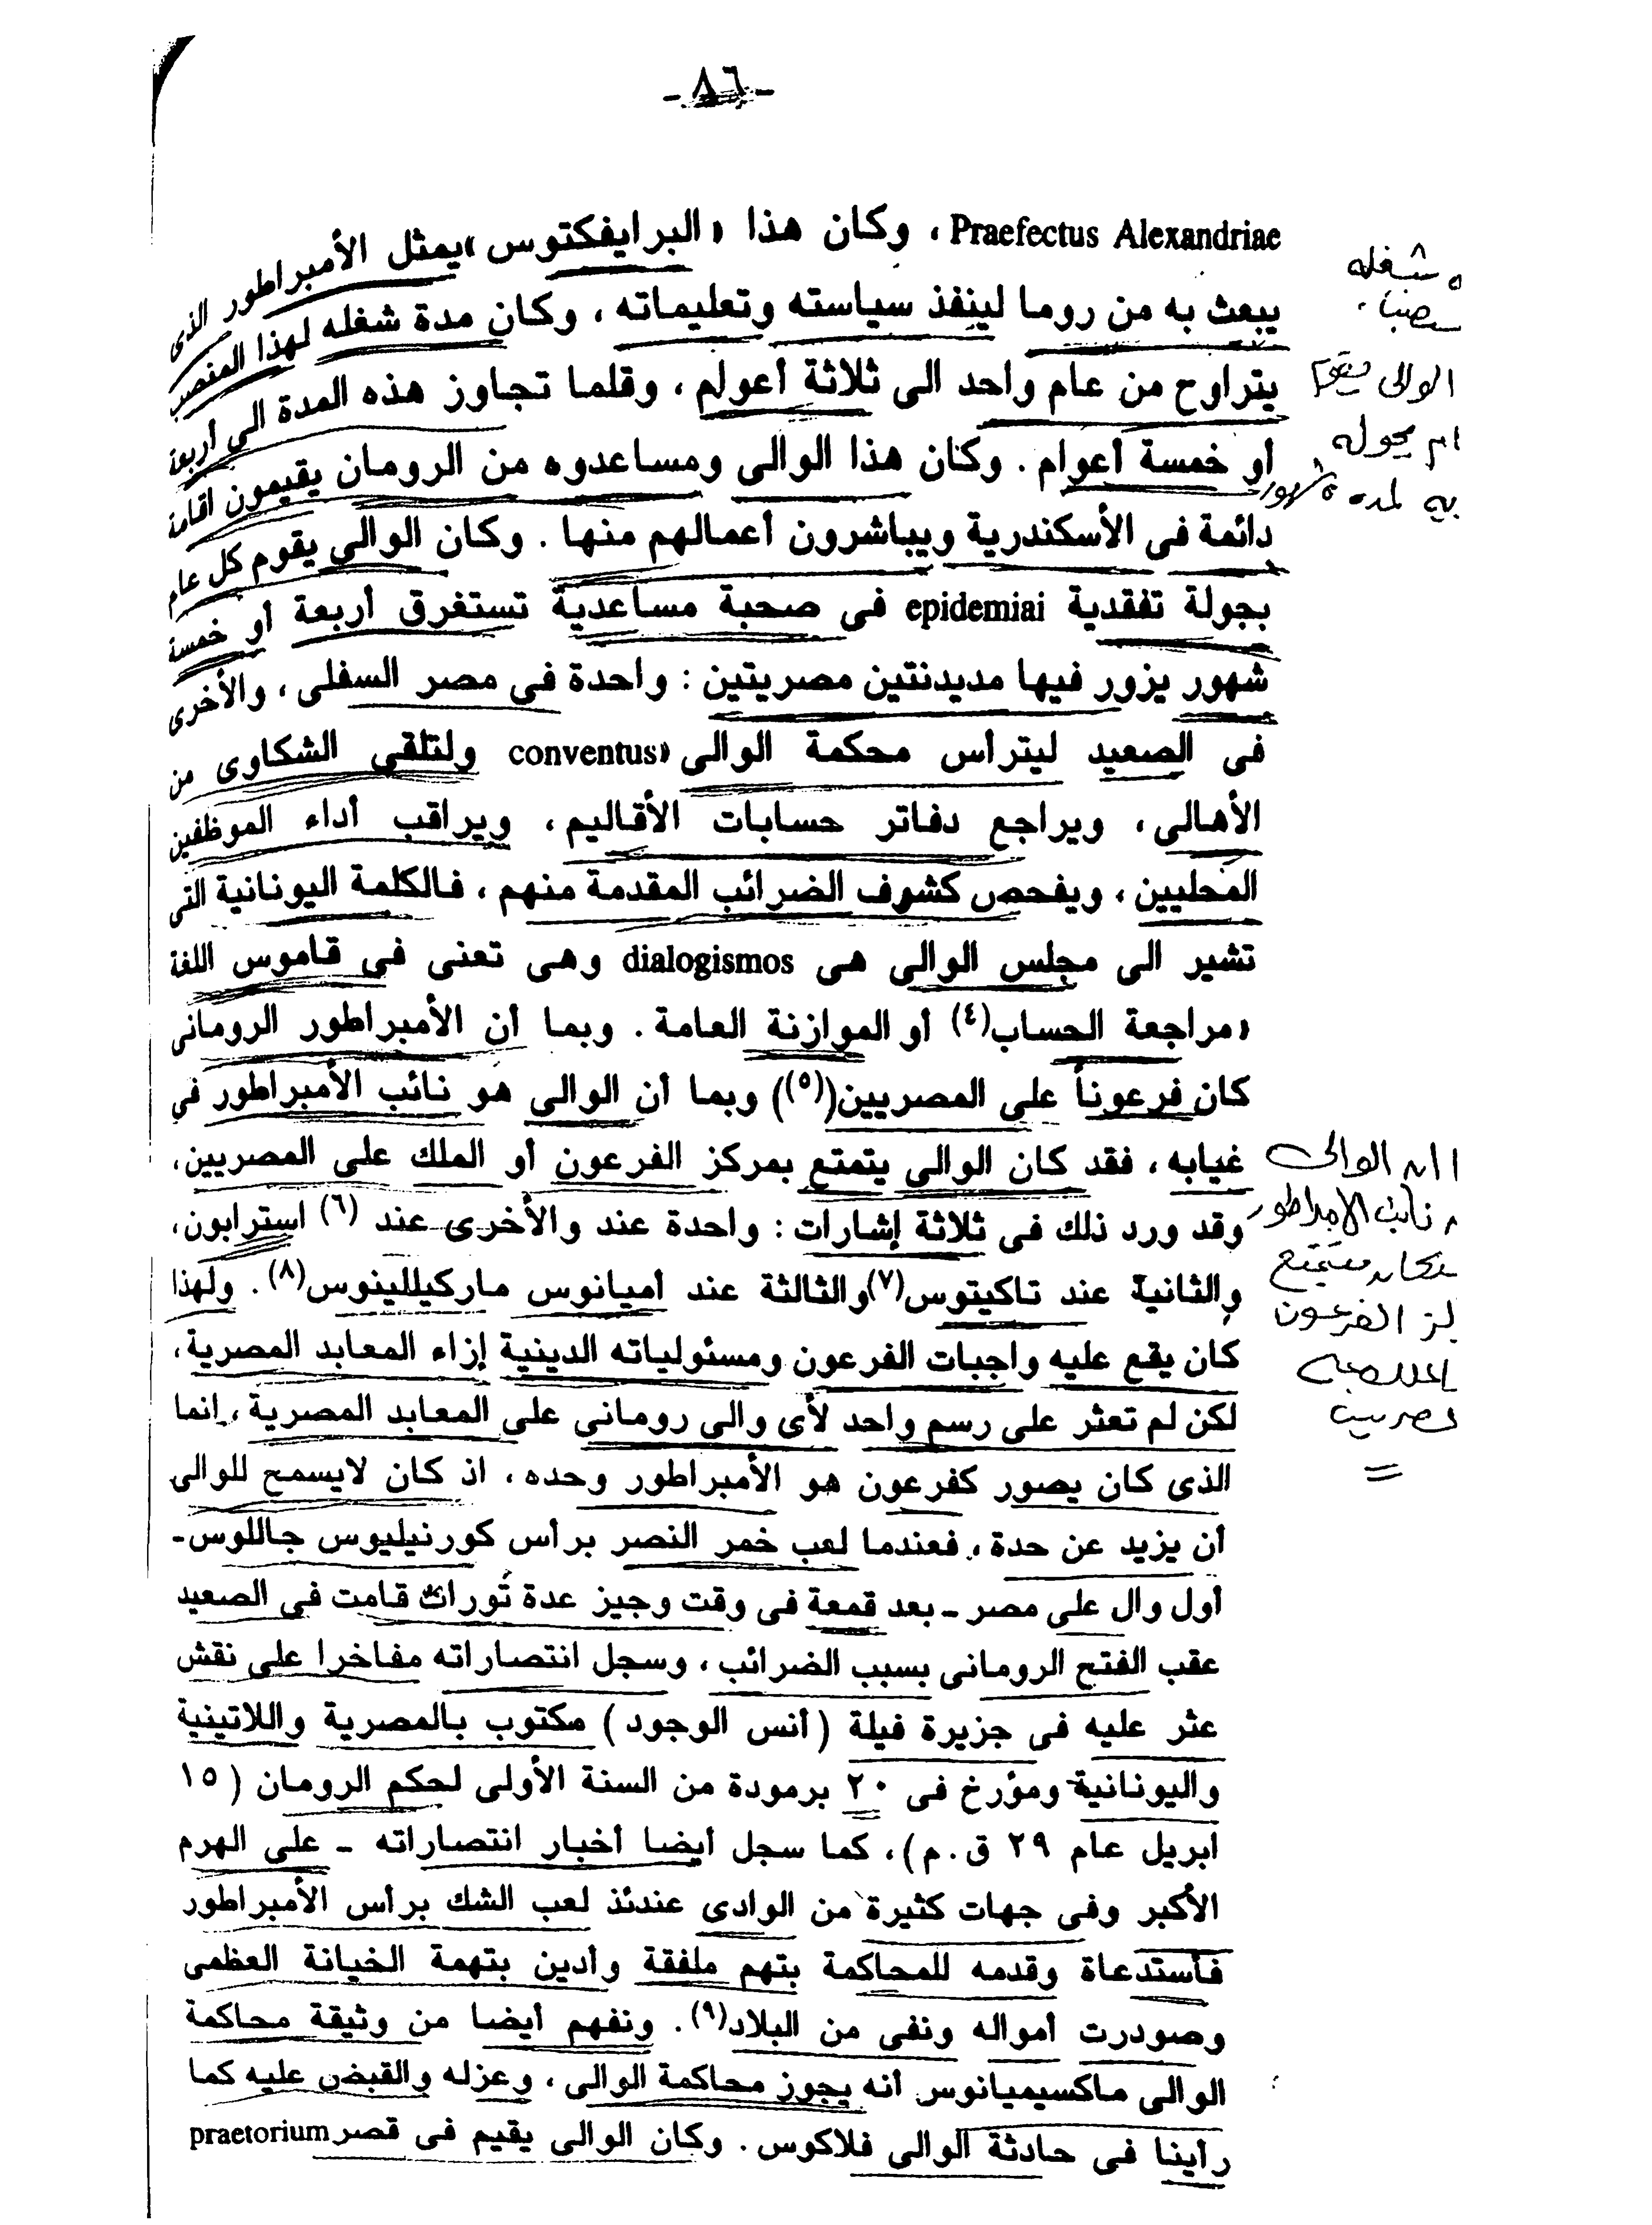 -٨٦-
Praefectus Alexandriae ، وكان هذا « البرايفكتوس » يمثل الأمبراطور الذى
يبعث به من روما لينفذ سياسته وتعليماته ، وكان مدة شغله لهذا المنصب
يتراوح من عام واحد الى ثلاثة أعوام ، وقلما تجاوز هذه المدة الى أربعة
أو خمسة أعوام . وكان هذا الوالى ومساعدوه من الرومان يقيمون اقامة
دائمة فى الأسكندرية ويباشرون أعمالهم منها . وكان الوالى يقوم كل عام
بجولة تفقدية epidemiai فى صحبة مساعدية تستغرق أربعة أو خمسة
شهور يزور فيها مديدنتين مصريتين : واحدة فى مصر السفلى ، والأخرى
فى الصعيد ليترأس محكمة الوالى «conventus ولتلقى الشكاوى من
الأهالى ، ويراجع دفاتر حسابات الأقاليم ، ويراقب أداء الموظفين
المحليين ، ويفحص كشوف الضرائب المقدمة منهم ، فالكلمة اليونانية التى
تشير الى مجلس الوالى هى dialogismos وهى تعنى فى قاموس اللغة
«مراجعة الحساب(٤) أو الموازنة العامة . وبما أن الأمبراطور الرومانى
كان فرعوناً على المصريين((٥)) وبما أن الوالى هو نائب الأمبراطور في
غيابه ، فقد كان الوالى يتمتع بمركز الفرعون أو الملك على المصريين،
وقد ورد ذلك فى ثلاثة إشارات : واحدة عند والأخرى عند (٦) استرابون،
والثانية عند تاكيتوس(٧) والثالثة عند أميانوس ماركيللينوس(٨) . ولهذا
كان يقع عليه واجبات الفرعون ومسئولياته الدينية إزاء المعابد المصرية،
لكن لم تعثر على رسم واحد لأى والى رومانى على المعابد المصرية ، إنما
الذى كان يصور كفرعون هو الأمبراطور وحده ، اذ كان لايسمح للوالى
أن يزيد عن حدة ، فعندما لعب خمر النصر برأس كورنيليوس جاللوس-
أول وال على مصر - بعد قمعة فى وقت وجيز عدة ثورات قامت فى الصعيد
عقب الفتح الرومانى بسبب الضرائب ، وسجل انتصاراته مفاخرا على نقش
عثر عليه فى جزيرة فيلة ( أنس الوجود ) مكتوب بالمصرية واللاتينية
واليونانية ومؤرخ فى ٢٠ برمودة من السنة الأولى لحكم الرومان ( ١٥
ابريل عام ٢٩ ق.م) ، كما سجل أيضا أخبار انتصاراته - على الهرم
الأكبر وفى جهات كثيرة من الوادى عندئذ لعب الشك برأس الأمبراطور
فأستدعاة وقدمه للمحاكمة بتهم ملفقة وأدين بتهمة الخيانة العظمى
وصودرت أمواله ونفى من البلاد(٩) . ونفهم أيضا من وثيقة محاكمة
الوالى ماكسيميانوس أنه يجوز محاكمة الوالى ، وعزله والقبض عليه كما
رأينا فى حادثة الوالى فلاكوس . وكان الوالى يقيم فى قصر praetorium
شغله
الوالى
الوالى
نائب الامبراطور
الفرعون